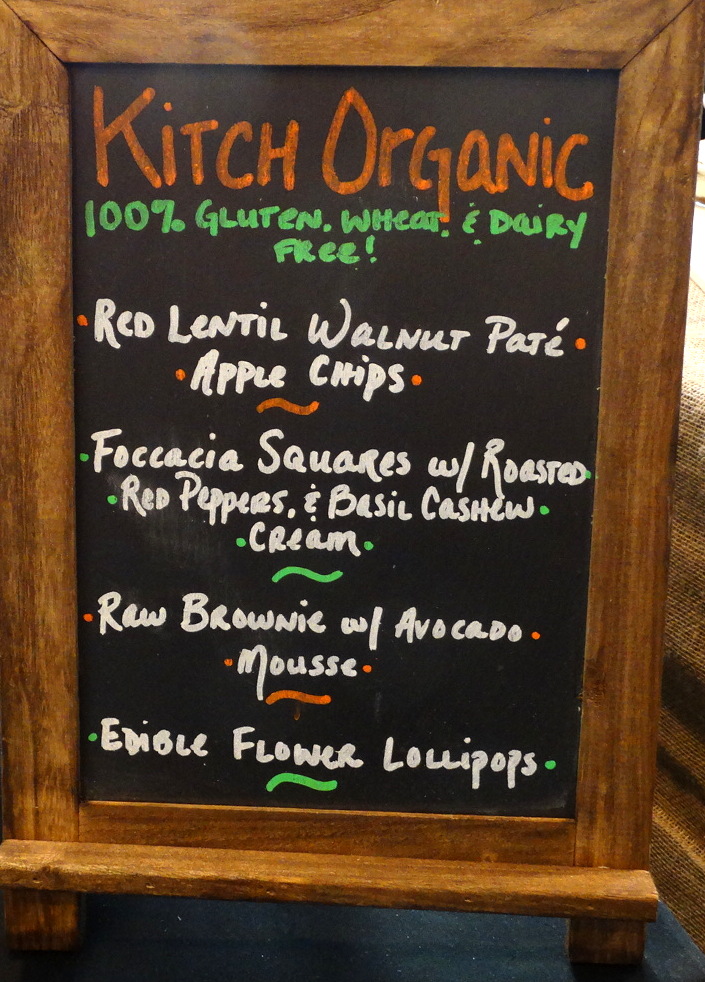 Kitch Organic
100% Gluten, Wheat, & Dairy
Free!
Red Lentil Walnut Paté
Apple Chips
Foccacia Squares w/ Roasted
Red Peppers, & Basil Cashew
Cream
Raw Brownie w/ Avocado
Mousse
Edible Flower Lollipops